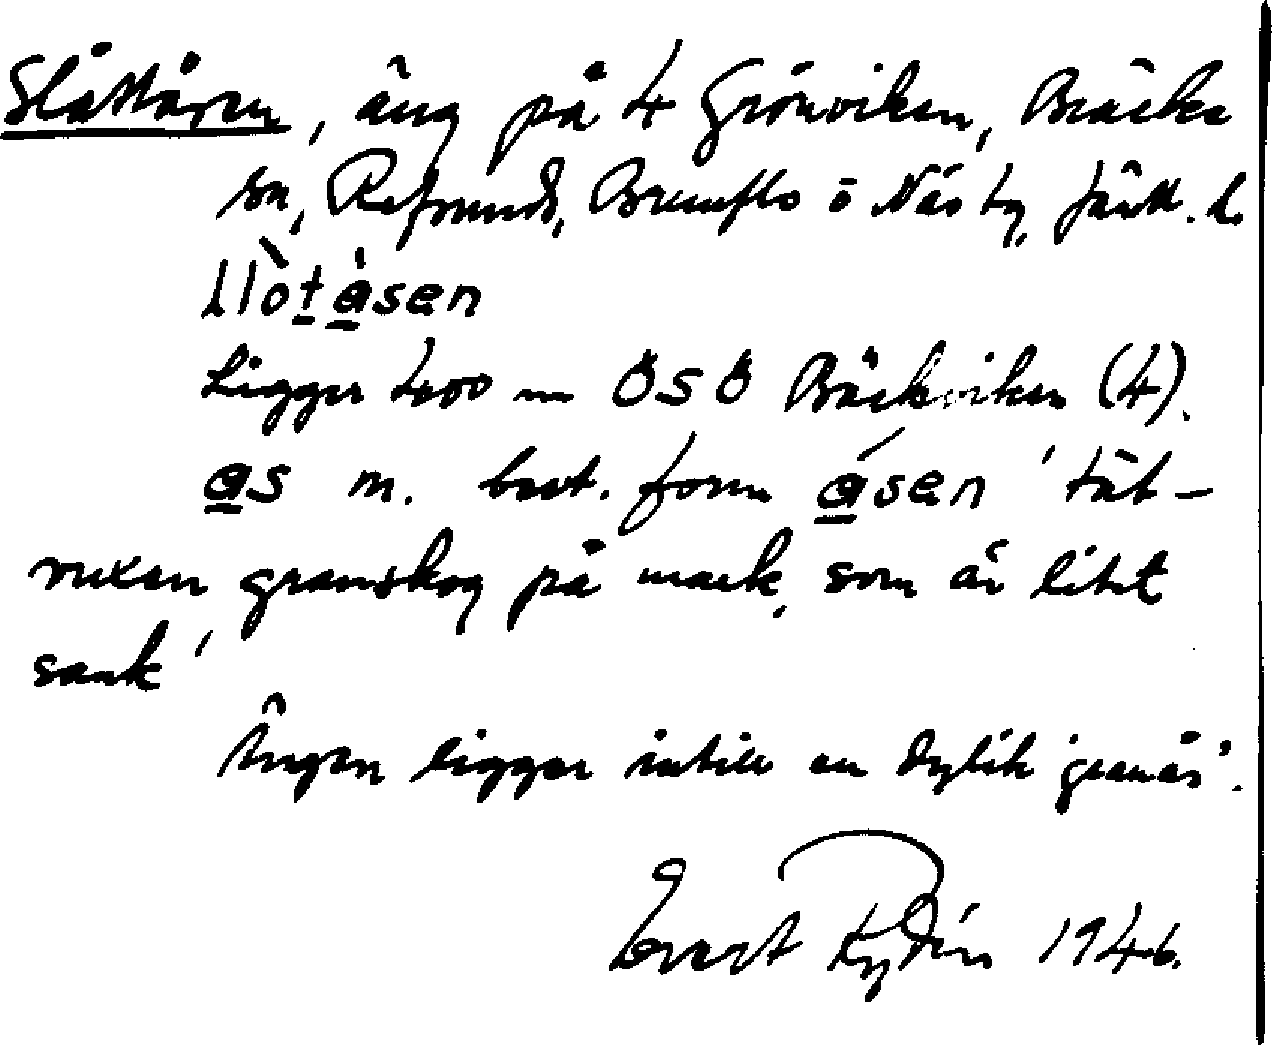 Slåttåsen, äng på 4 Grönviken, Bräcke
sn, Refsunds, Brunflo o Näs tg, Jämtl. l.
Llòtàsen
Ligger 400 m OSO Bäckviken (4).
as m. best. form ásen 'tät-
vuxen granskog på mark, som är litet
sank'
Ängen ligger intill en dylik 'granås'.
Evert Rydén 1946.